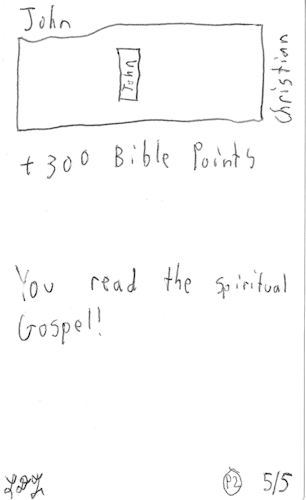 John
John
Christian
+300 Bible Points
You read the spiritual
Gospel!
P2 5/5